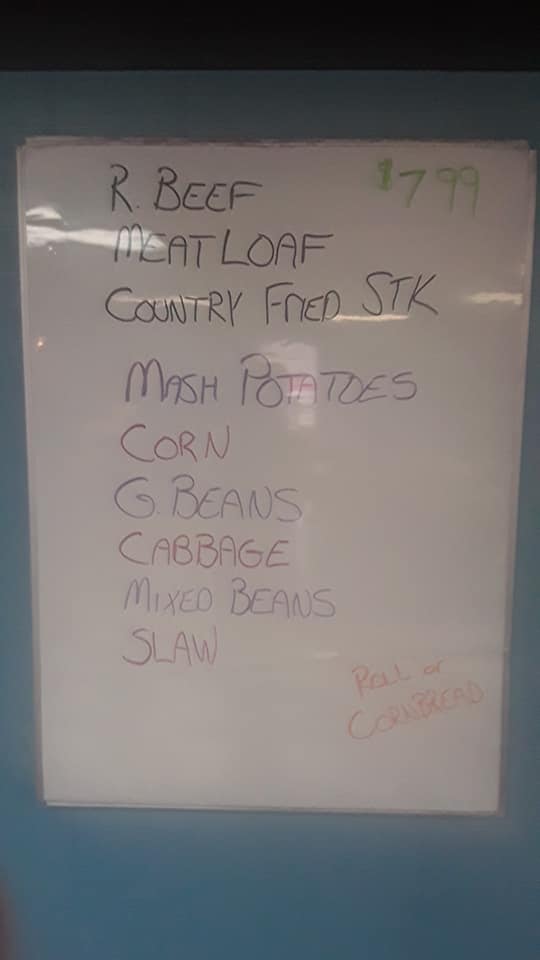 R. BEEF $7.99
MEATLOAF
COUNTRY FRIED STK
MASH POTATOES
CORN
G. BEANS
CABBAGE
MIXED BEANS
SLAW
Roll or
CORNBREAD